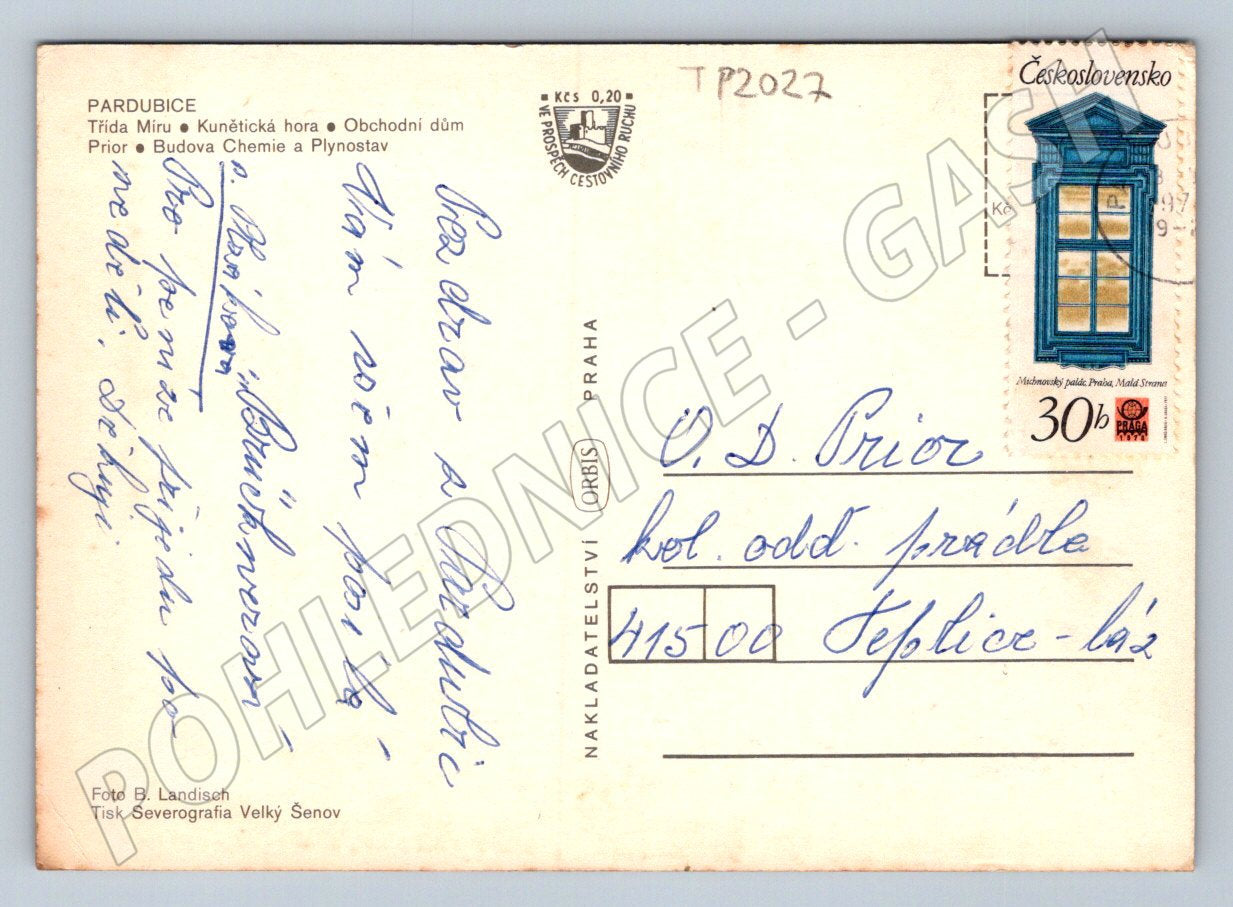 PARDUBICE
Třída Míru ● Kunětická hora ● Obchodní dům
Prior ● Budova Chemie a Plynostav
Kčs 0,20
VE PROSPĚCH CESTOVNÍHO RUCHU
TP2027
Československo
Kč
Michnovský palác, Praha, Malá Strana
30h
PRAGA
1978
Pozdrav z Pardubic
Vám všem posílá
Pro peníze přijedu po
neděli. Děkuji.
NAKLADATELSTVÍ ORBIS PRAHA
O. D. Prior
kol. odd. prádla
415 00 Teplice-láz
Foto B. Landisch
Tisk Severografia Velký Šenov
POHLEDNICE - GASH